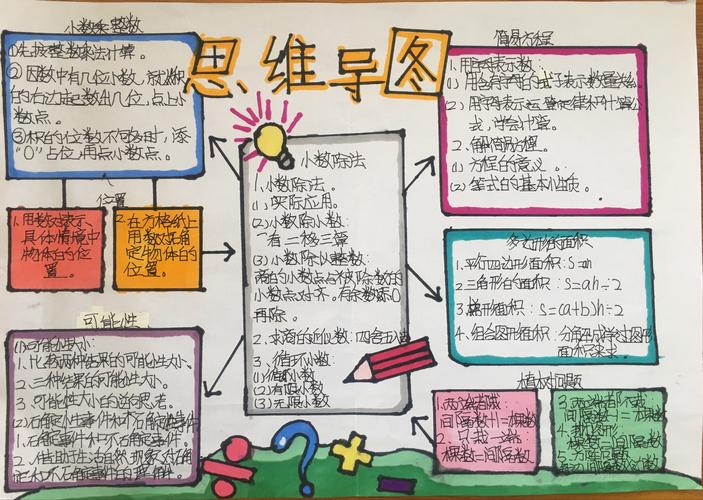 思维导图
小数乘整数
①先按整数乘法计算。
②因数中有几位小数，就从积
的右边起数出几位，点上小
数点。
③积的位数不够时，添
"0"占位，用点小数点。
位置
1.用数对表示
具体情境中
物体的位
置。
2.在方格纸上
用数对确
定物体的
位置。
可能性
(1)可能性大小：
1.比较两种结果的可能性大小。
2.三种结果的可能性大小。
3.可能性大小的逆思考。
1.确定事件和不确定事件。
小数除法
1.小数除法。
(1)实际应用。
(2)小数除小数：
一看二移三算
(3)小数除以整数：
商的小数点与被除数的
小数点对齐。有余数添0
再除。
2.求商的近似数：四舍五入
3.循环小数
(1)循环小数
(2)有限小数
(3)无限小数
简易方程
1.用字母表示数：
(1)用含有字母的式子表示数量关系。
(2)用字母表示运算定律和计算公
式，学会计算。
2.解简易方程。
(1)方程的意义。
(2)等式的基本性质。
多边形的面积
1.平行四边形面积：S=ah
2.三角形的面积：S=ah÷2
3.梯形面积：S=(a+b)h÷2
4.组合图形面积：分解成学过图形
面积来求。
植树问题
1.两端都栽：
间隔数+1=棵数
2.只栽一端：
棵数=间隔数
3.两端都不栽
间隔数-1=棵数
4.封闭图形
棵数=间隔数